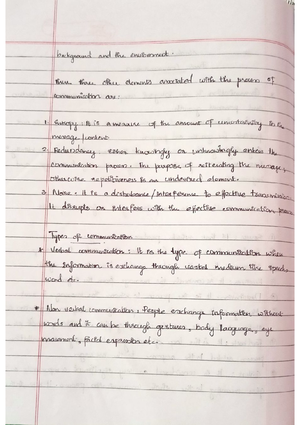 background and the environment.
three other elements associated with the process of
communication are:
1. Entropy: It is a measure of the amount of uncertainity in a
message/content
2. Redundancy either knowingly or unknowingly enters the
communication process. The purpose of the message,
otherwise repetitiveness is an undesired element.
3. Noise: It is a disturbance/interference to effective transmission.
It disrupts or interfere with the effective communication process
Types of communication
* Verbal communication: It is the type of communication where
the information is exchange through verbal medium like speech,
word etc.
* Non verbal communication: People exchange information without
words and it can be through gestures, body language, eye
movement, facial expression etc.